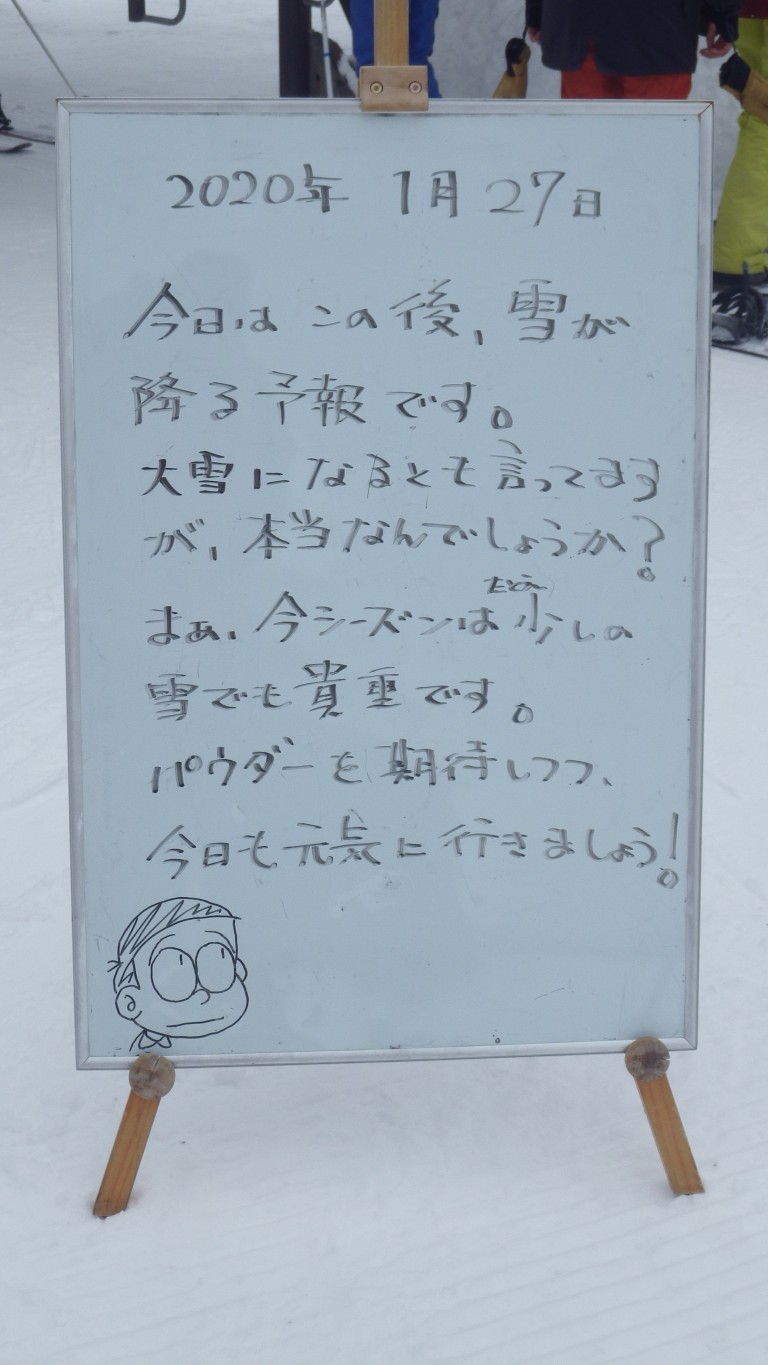 2020年 1月 27日
今日は この後、雪が
降る予報です。
大雪になるとも言ってます
が、本当なんでしょうか?
たとえ
まぁ、今シーズンは少しの
雪でも貴重です。
パウダーを期待しつつ、
今日も元気に行きましょう!